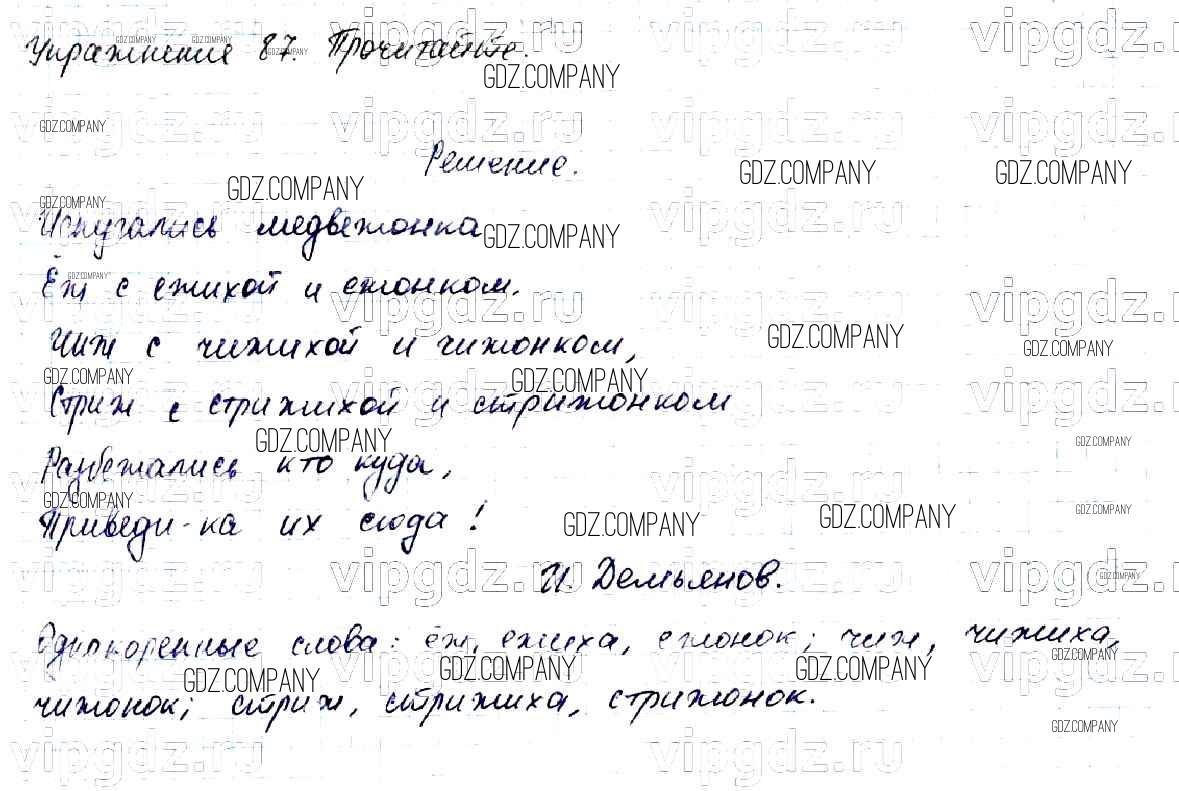 Упражнение 87. Прочитайте.
Решение.
Испугались медвежонка
Ёж с ежихой и ежонком.
Чиж с чижихой и чижонком,
Стриж с стрижихой и стрижонком
Разбежались кто куда,
Приведи-ка их сюда!
И. Демьянов.
Однокоренные слова: ёж, ежиха, ежонок; чиж, чижиха,
чижонок; стриж, стрижиха, стрижонок.